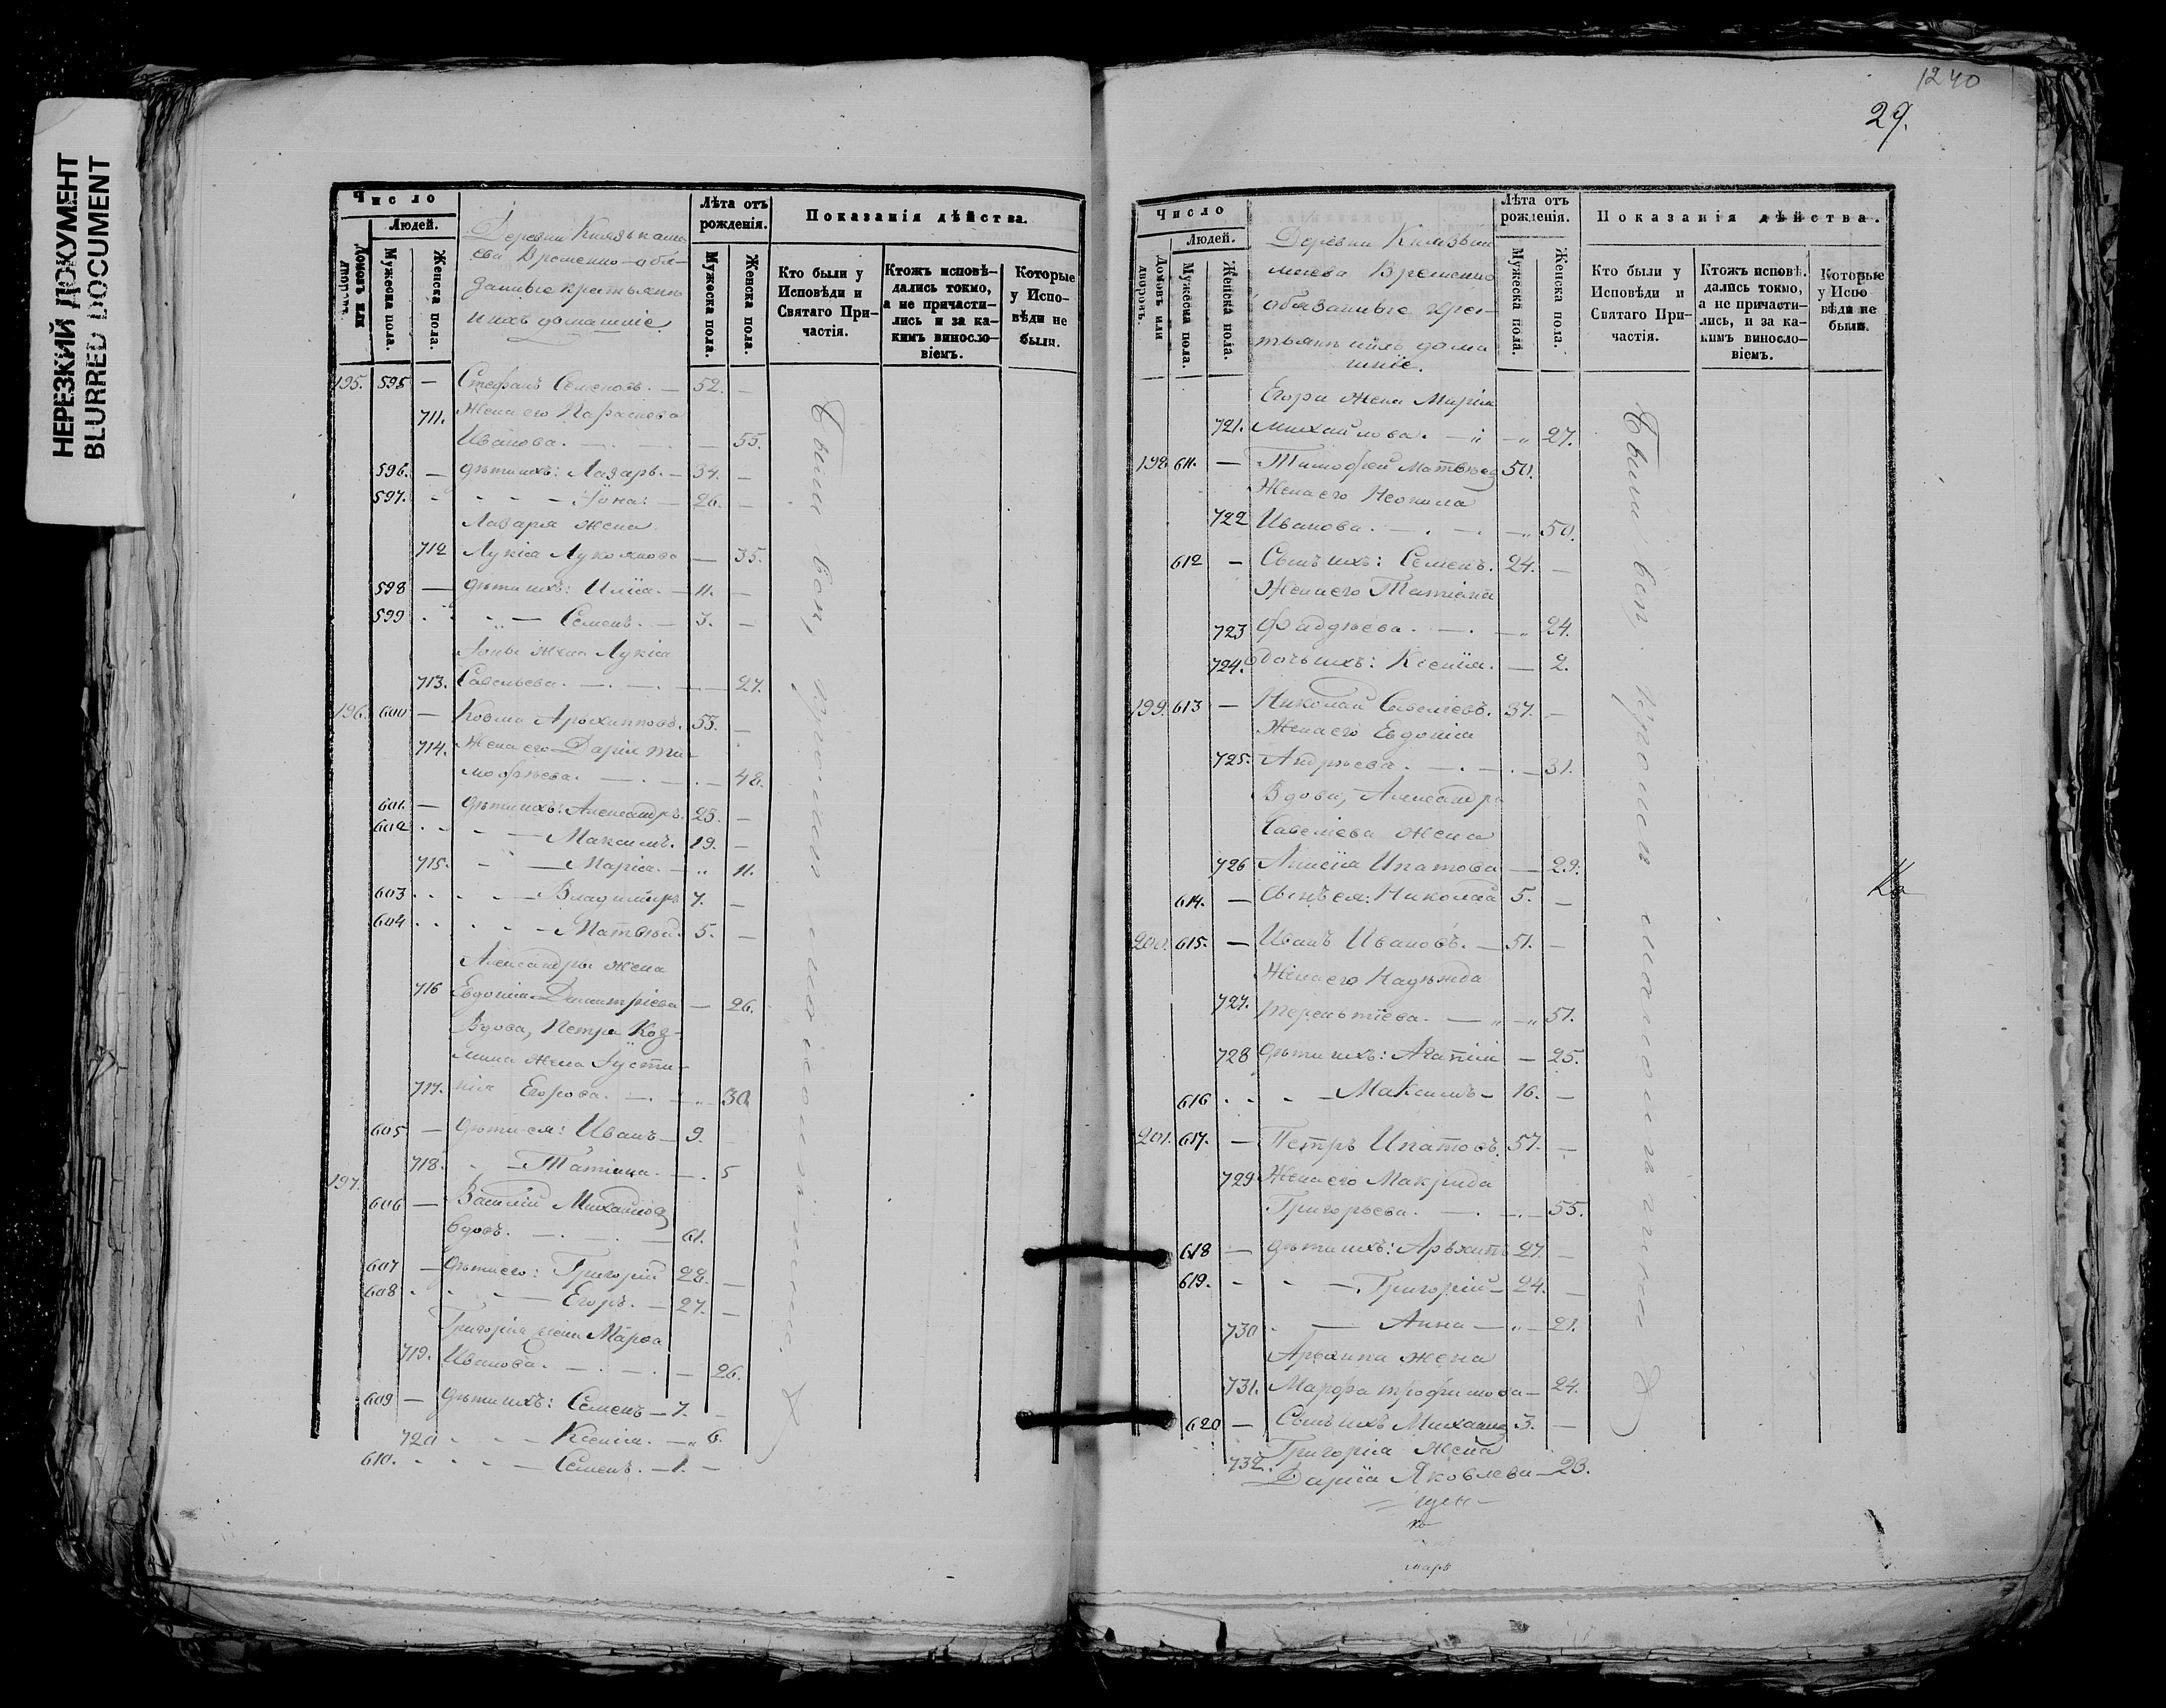 НЕРЕЗКИЙ ДОКУМЕНТ
BLURRED DOCUMENT
Число
Людей.
Домовъ или дворовъ.
Мужеска пола.
Женска пола.
Деревни
ева Временно-обя-
крестьяне
и ихъ домашніе.
Лѣта отъ рожденія.
Мужеска пола.
Женска пола.
Показанія дѣйства.
Кто были у Исповѣди и Святаго При-частія.
Ктожъ исповѣ-дались токмо, а не причасти-лись и за ка-кимъ виносло-віемъ.
Которые у Испо-вѣди не были.
195. 595 — Стефанъ Семеновъ. — 52. —
Жена его
711. Иванова. — 55.
596. — дѣти ихъ: Лазарь. — 34. —
597. - - - Іона. — 26. —
Лазаря жена
712 Лукія — 35.
598 — дѣти ихъ: Илія. — 11. —
599 - Семенъ. — 3. —
Іоны жена Лукія
713. Савельева. — 27.
196. 600 — Козма Архипповъ. 53. —
714. Жена его Дарія Ти-
мофѣева. — 48.
601. — дѣти ихъ: Александръ. 25. —
602 - - - Максимъ. 19. —
715. - — Марія. — „ 11.
603 - - - Владиміръ 7. —
604 - - - Матвѣй. 5. —
Александра жена
716 Евдокія Димитріева — 26.
Вдова, Петра Коз-
мина жена Іусти-
717. нія Егорова. — 30.
605 — дѣти ея: Иванъ — 9. -
718. - Татіана. — 5
197.
606 — Василій Михайлов
вдовъ. — 61.
607 — дѣти его: Григорій 28. —
608 - - - Егоръ. — 27. —
Григорія жена Марѳа
719. Иванова. — 26.
609 — дѣти ихъ: Семенъ — 7. -
720 - - - Ксенія. — „ 6.
610. - - - Семенъ. — 1. —
1240
29.
Число
Людей.
Домовъ или дворовъ.
Мужеска пола.
Женска пола.
Деревни
Временно
обязанные крес-
тьяне и ихъ дома
шніе.
Лѣта отъ рожденія.
Мужеска пола.
Женска пола.
Показанія дѣйства.
Кто были у Исповѣди и Святаго При-частія.
Ктожъ исповѣ-дались токмо, а не причасти-лись, и за ка-кимъ виносло-віемъ.
Которые у Испо-вѣди не были.
Егора жена Марія
721. Михайлова. — 27.
198 611. — Тимофей Матвѣев 50.
Жена его Неонила
722 Иванова. — 50.
612 — Сынъ ихъ: Семенъ. 24. —
Жена его Татіана
723 Фаддѣева. — 24.
724. дочь ихъ: Ксенія. — 2.
199. 613 — Николай Савеліевъ. 37. —
Жена его Евдокія
725. Андрѣева. — 31.
Вдова, Александра
Савеліева жена
726 Ипатова — 29.
614. — сынъ ея: Николай 5. —
200. 615. — Иванъ Ивановъ. — 51. —
Жена его Надѣжда
727. Терентіева. — „ — „ 51.
728 дѣти ихъ: Агапія — 25.
616 - - - Максимъ — 16. —
201. 617. — Петръ Ипатовъ. 57. —
729 Жена его Макрида
Григорьева. — 55.
618 — дѣти ихъ: Архипъ 27. —
619. - - — Григорій — 24. —
730 - — Анна — „ — 21.
Архипа жена
731. Марфа Трофимова — 24.
620 — Сынъ ихъ Михаилъ 3. —
Григорія жена
732. Дарія Яковлева — 23.